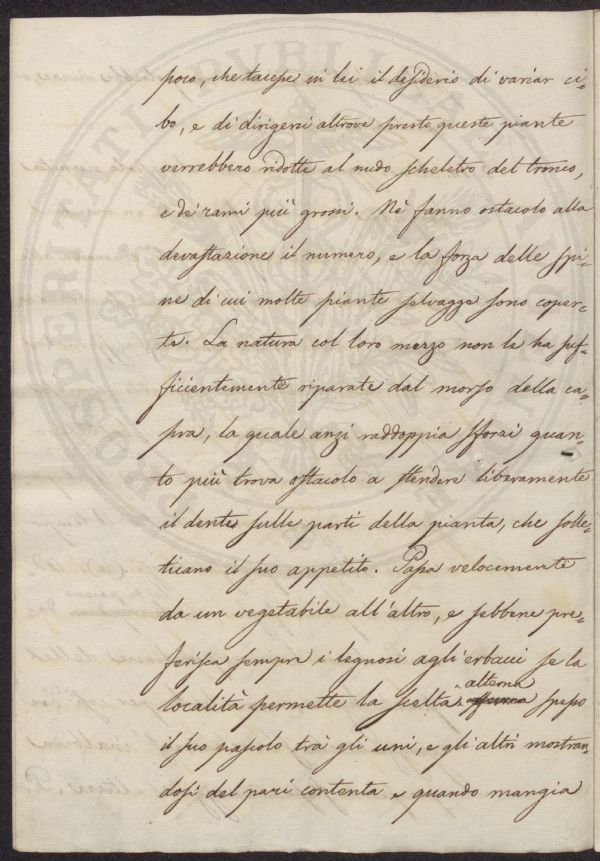 poco, che tacesse in lei il desiderio di variar ci-
bo, e di dirigersi altrove presto queste piante
verrebbero ridotte al nudo scheletro del tronco,
e de' rami più grossi. Nè fanno ostacolo alla
devastazione il numero, e la forza delle spi-
ne di cui molte piante selvagge sono coper-
te. La natura col loro mezzo non le ha suf-
ficientemente riparate dal morso della ca-
pra, la quale anzi raddoppia sforzi quan-
to più trova ostacolo a stendere liberamente
il dente sulle parti della pianta, che solle-
ticano il suo appetito. Passa velocemente
da un vegetabile all'altro, e sebbene pre-
ferisca sempre i legnosi agli erbacei se la
alterna
località permette la scelta, spesso
il suo pascolo trà gli uni, e gli altri mostran-
dosi del pari contenta e quando mangia